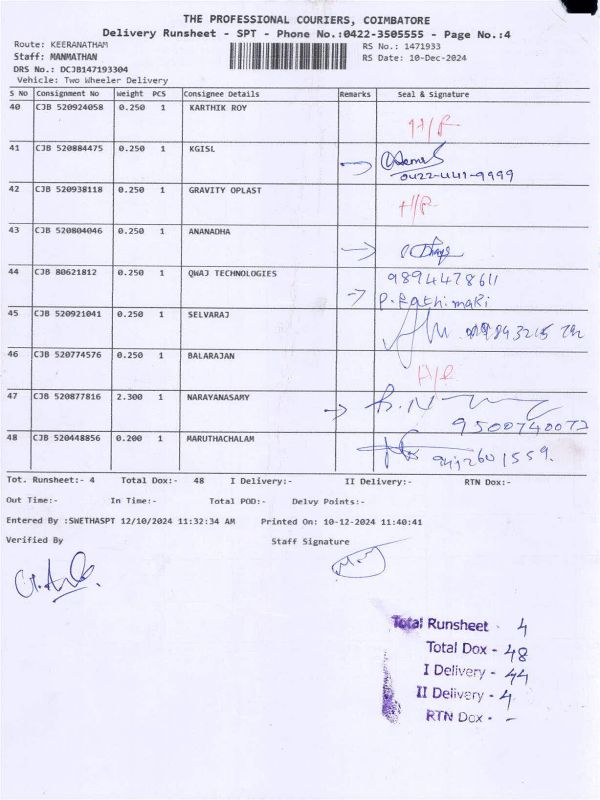 THE PROFESSIONAL COURIERS, COIMBATORE
Delivery Runsheet - SPT - Phone No.:0422-3505555 - Page No.:4
Route: KEERANATHAM
RS No.: 1471933
Staff: MANMATHAN
RS Date: 10-Dec-2024
DRS No.: DCJB147193304
Vehicle: Two Wheeler Delivery
S No Consignment No Weight PCS Consignee Details Remarks Seal & Signature
40 CJB 520924058 0.250 1 KARTHIK ROY
H/R
41 CJB 520884475 0.250 1 KGISL
0422-441-9999
42 CJB 520938118 0.250 1 GRAVITY OPLAST
H/R
43 CJB 520804046 0.250 1 ANANADHA
44 CJB 80621812 0.250 1 QWAJ TECHNOLOGIES 9894478611
P. Rathimaki
45 CJB 520921041 0.250 1 SELVARAJ
46 CJB 520774576 0.250 1 BALARAJAN
H/R
47 CJB 520877816 2.300 1 NARAYANASAMY
9500740072
48 CJB 520448856 0.200 1 MARUTHACHALAM
Tot. Runsheet:- 4 Total Dox:- 48 I Delivery:- II Delivery:- RTN Dox:-
Out Time:- In Time:- Total POD:- Delvy Points:-
Entered By :SWETHASPT 12/10/2024 11:32:34 AM Printed On: 10-12-2024 11:40:41
Verified By Staff Signature
Total Runsheet - 4
Total Dox - 48
I Delivery - 44
II Delivery - 4
RTN Dox - -